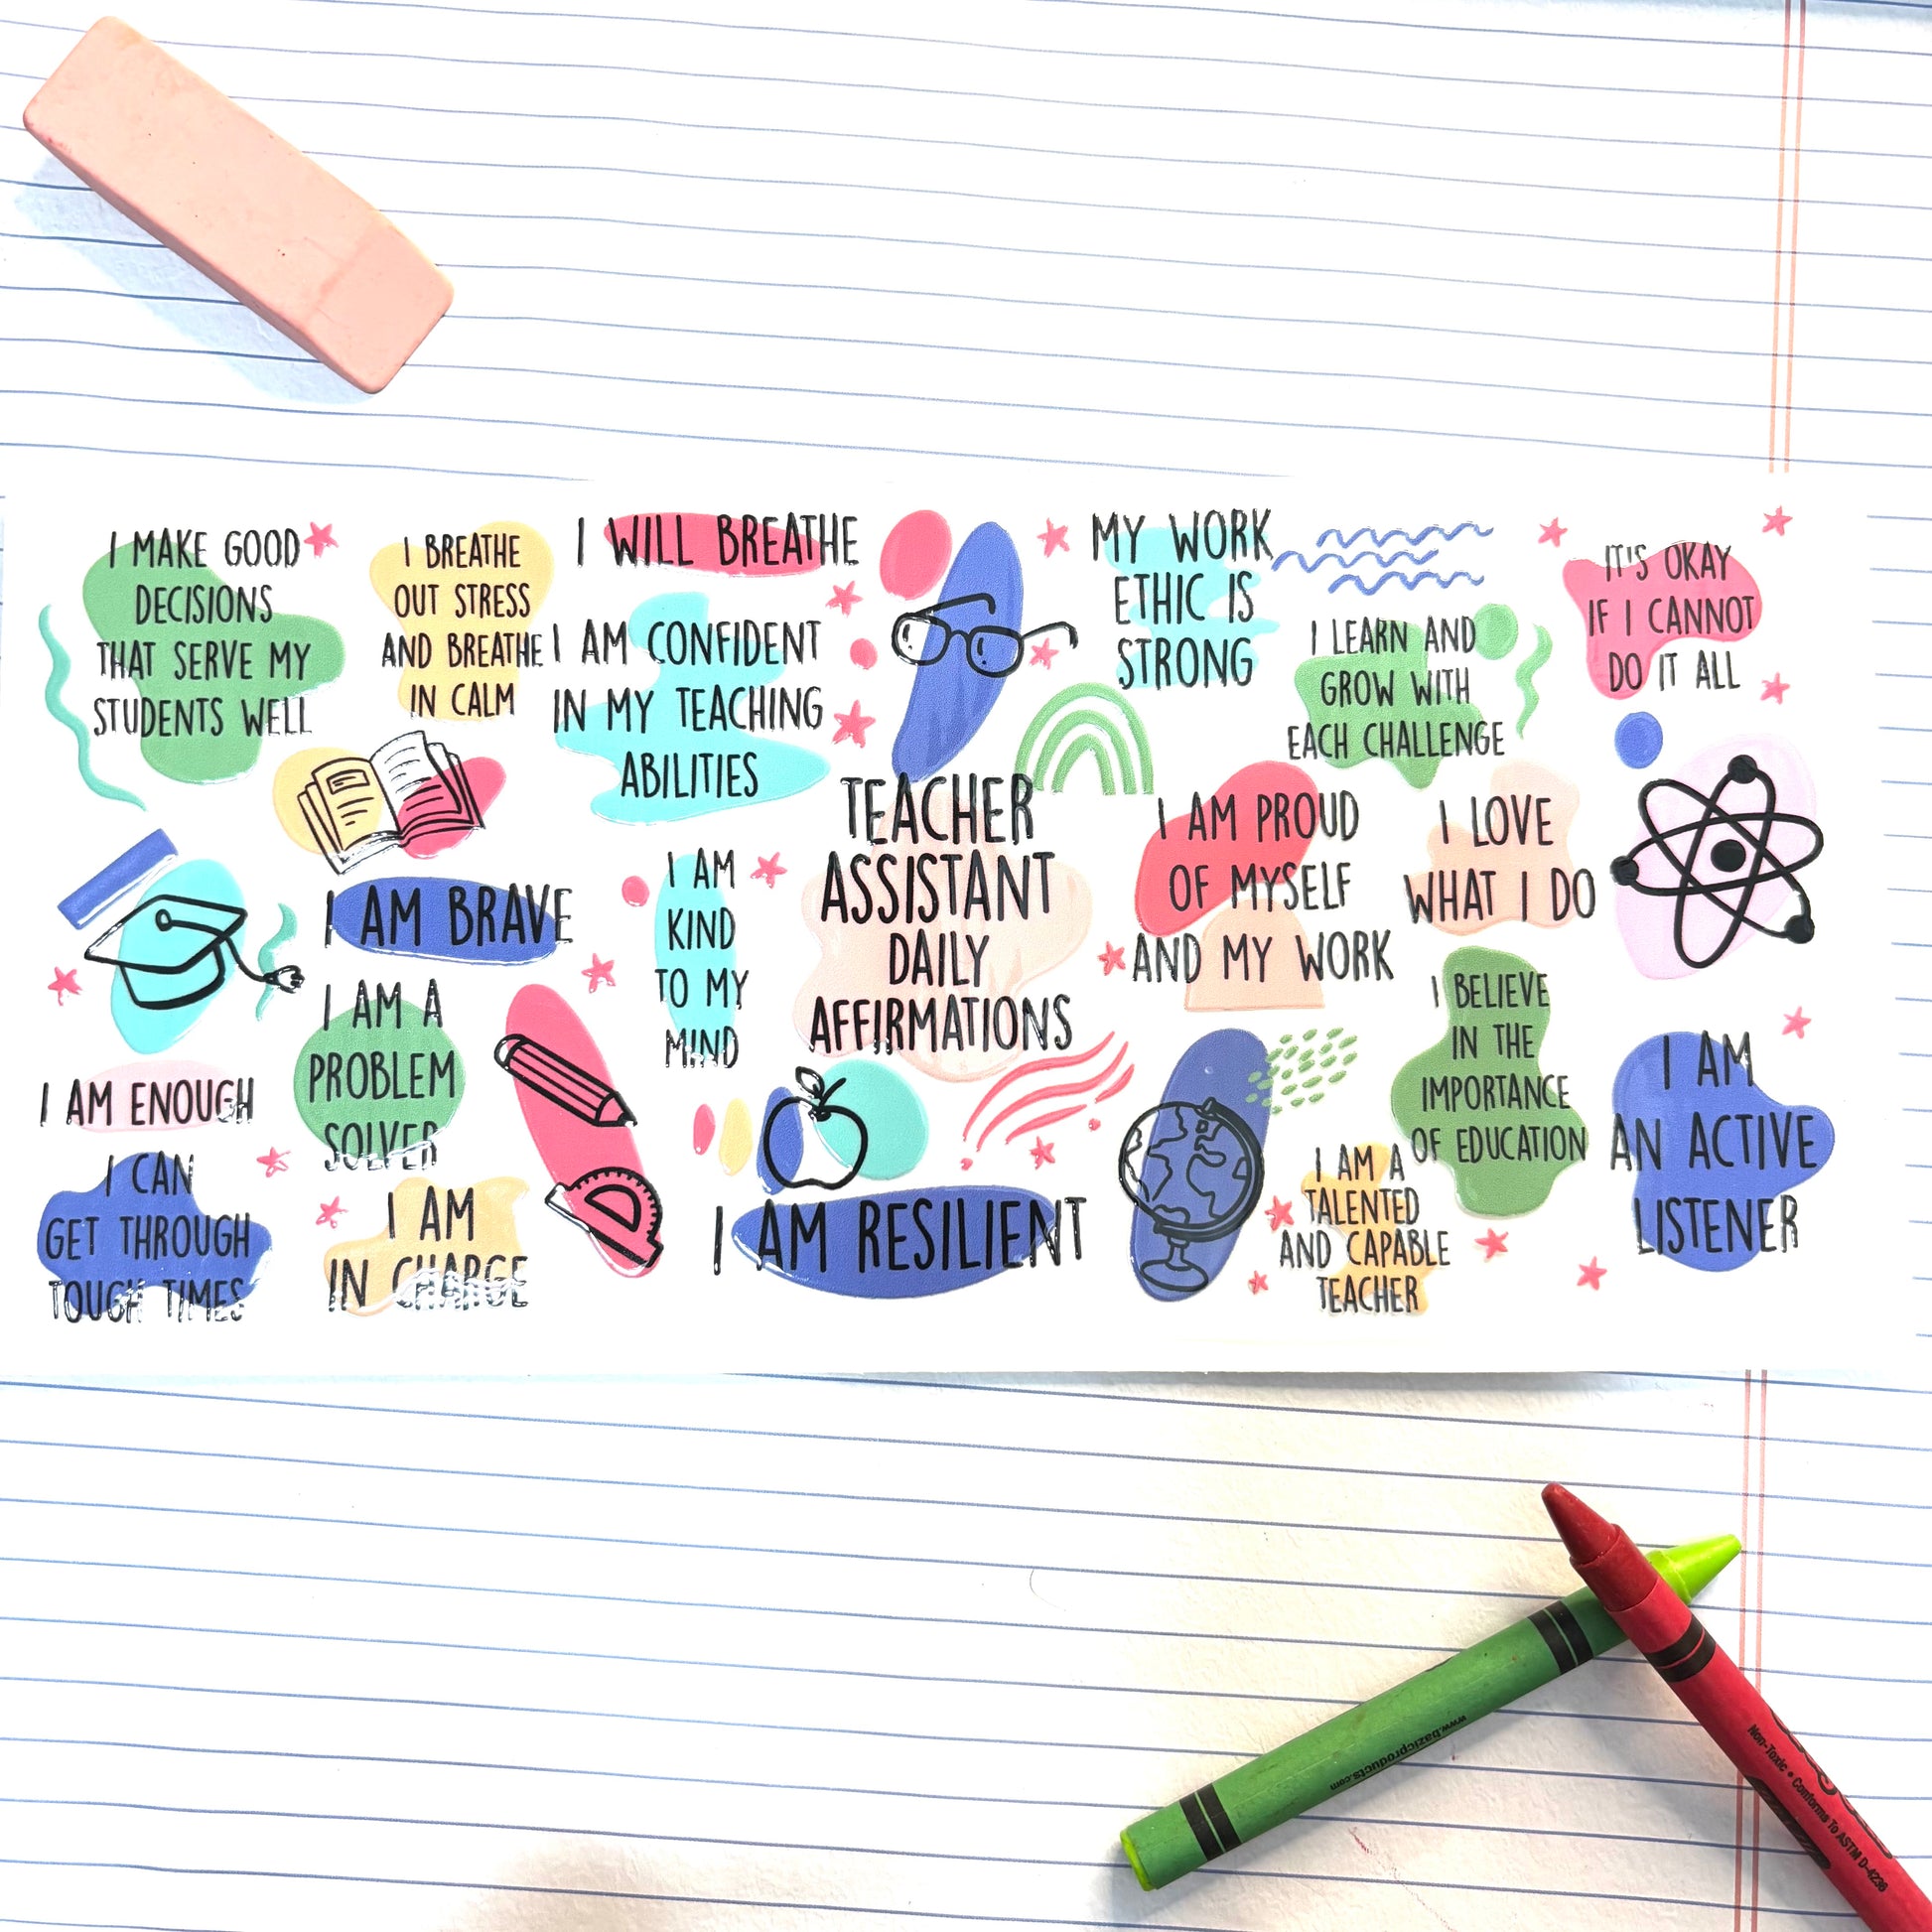 I MAKE GOOD
DECISIONS
THAT SERVE MY
STUDENTS WELL
I BREATHE
OUT STRESS
AND BREATHE
IN CALM
I WILL BREATHE
I AM CONFIDENT
IN MY TEACHING
ABILITIES
MY WORK
ETHIC IS
STRONG
I LEARN AND
GROW WITH
EACH CHALLENGE
IT'S OKAY
IF I CANNOT
DO IT ALL
I AM BRAVE
I AM
KIND
TO MY
MIND
TEACHER
ASSISTANT
DAILY
AFFIRMATIONS
I AM PROUD
OF MYSELF
AND MY WORK
I LOVE
WHAT I DO
I AM ENOUGH
I AM A
PROBLEM
SOLVER
I BELIEVE
IN THE
IMPORTANCE
OF EDUCATION
I AM
AN ACTIVE
LISTENER
I CAN
GET THROUGH
TOUGH TIMES
I AM
IN CHARGE
I AM RESILIENT
I AM A
TALENTED
AND CAPABLE
TEACHER
www.bazicproducts.com
Non-Toxic • Conforms To ASTM D-4236